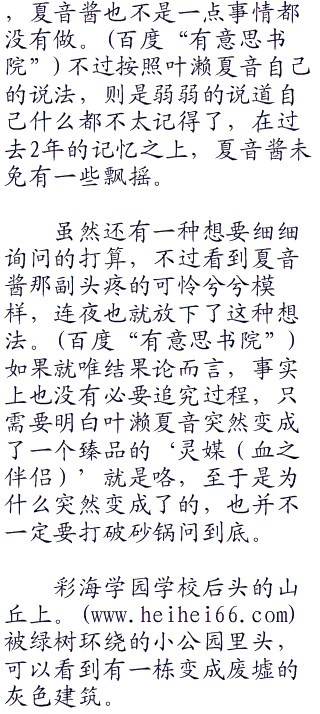 ，夏音酱也不是一点事情都
没有做。(百度“有意思书
院”)不过按照叶濑夏音自己
的说法，则是弱弱的说道自
己什么都不太记得了，在过
去2年的记忆之上，夏音酱未
免有一些飘摇。
虽然还有一种想要细细
询问的打算，不过看到夏音
酱那副头疼的可怜兮兮模
样，连夜也就放下了这种想
法。(百度“有意思书院”)
如果就唯结果论而言，事实
上也没有必要追究过程，只
需要明白叶濑夏音突然变成
了一个臻品的‘灵媒（血之
伴侣）’就是咯，至于是为
什么突然变成了的，也并不
一定要打破砂锅问到底。
彩海学园学校后头的山
丘上。(www.heihei66.com)
被绿树环绕的小公园里头，
可以看到有一栋变成废墟的
灰色建筑。